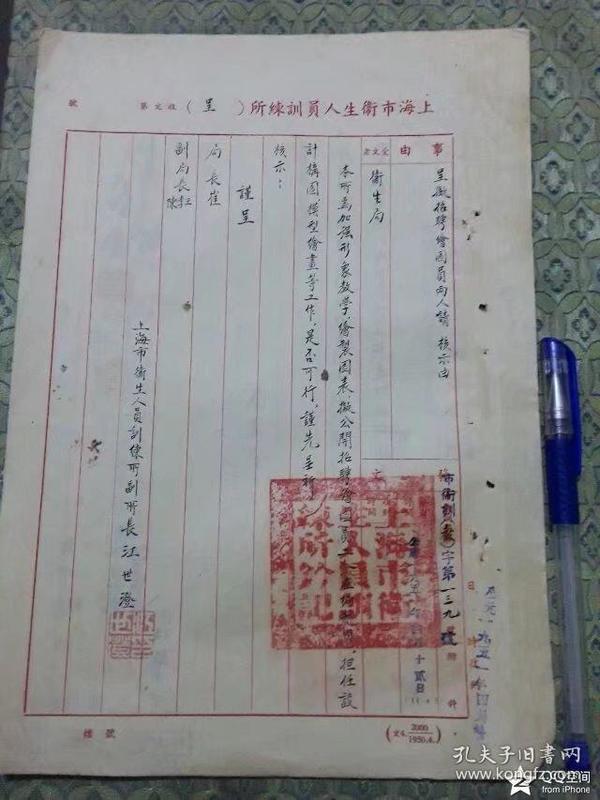 上海市衛生人員訓練所（呈）收文第　號
事由
呈擬招聘繪圖員兩人請 核示由
受文者
衛生局
市衛訓(教)字第一三九號
附件
本所為加强形象教學，繪製圖表，擬公開招聘繪圖員二
担任設
計構圖、模型繪畫等工作，是否可行，謹先呈祈
核示：
謹呈
局長崔
副局長
上海市衛生人員訓練所副所長 江世澄
檔號
（文4. 2000/1950.4.）
孔夫子旧书网
www.kongfz.com
QQ空间
from iPhone